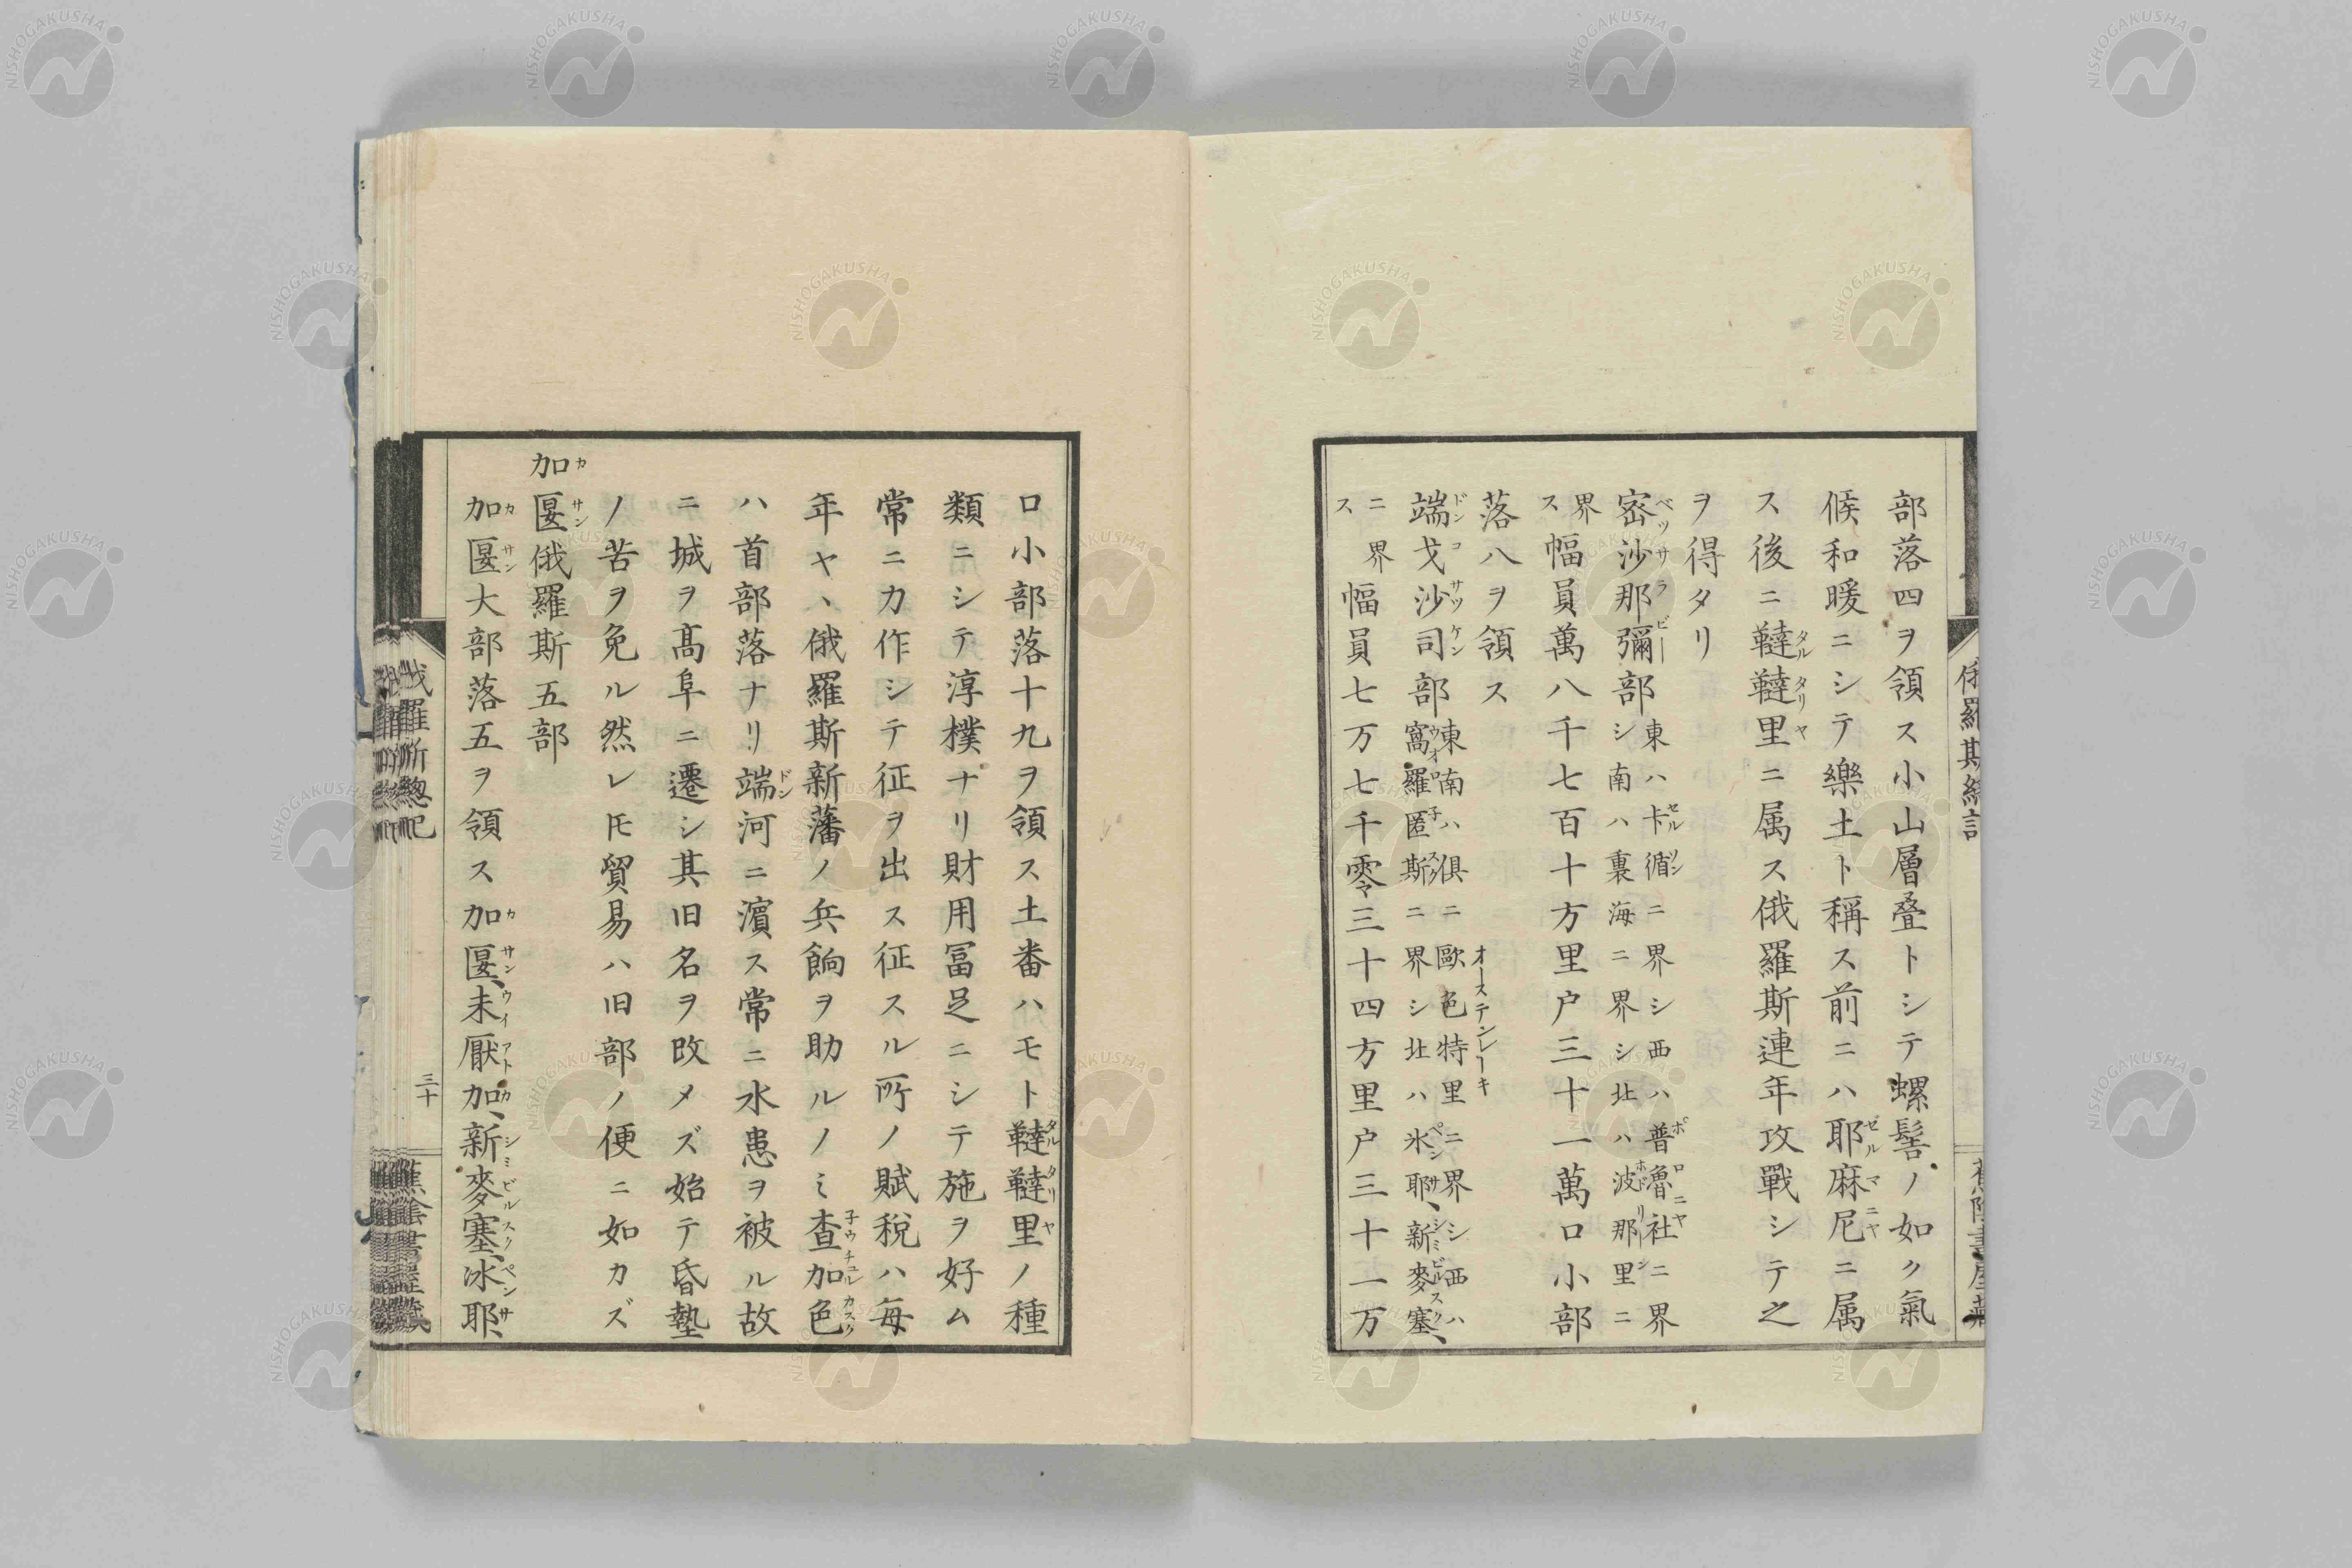 部落四ヲ領ス小山層疊トシテ螺髻ノ如ク氣
候和暖ニシテ樂土ト稱ス前ニハ耶麻尼ニ属
ス後ニ韃韃里ニ属ス俄羅斯連年攻戰シテ之
ヲ得タリ
密沙那彌部東ハ卡循ニ界シ西ハ普魯社ニ界
シ南ハ裏海ニ界シ北ハ波那里ニ
界ス幅員萬八千七百十方里户三十一萬口小部
落八ヲ領ス
端戈沙司部東南ハ俱ニ歐色特里ニ界シ西ハ
窩羅匿斯ニ界シ北ハ氷耶、新麥塞、
ニ界ス幅員七万七千零三十四方里户三十一万
口小部落十九ヲ領ス土番ハモト韃韃里ノ種
類ニシテ淳樸ナリ財用冨足ニシテ施ヲ好ム
常ニカ作シテ征ヲ出ス征スル所ノ賦税ハ毎
年ヤヽ俄羅斯新藩ノ兵餉ヲ助ルノミ査加色
ハ首部落ナリ端河ニ濵ス常ニ水患ヲ被ル故
ニ城ヲ髙阜ニ遷シ其旧名ヲ改メズ始テ昏墊
ノ苦ヲ免ル然レ𪜈貿易ハ旧部ノ便ニ如カズ
加匽俄羅斯五部
加匽大部落五ヲ領ス加匽、未厭加、新麥塞、冰耶、
俄羅斯總記
三十
蕉陰書屋藏
NISHOGAKUSHA